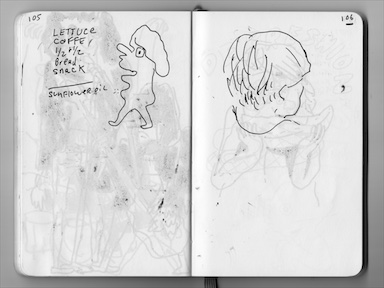 105
LETTUCE
COFFE/
1/2 & 1/2
Bread
SNACK
SUNFLOWER OIL
106